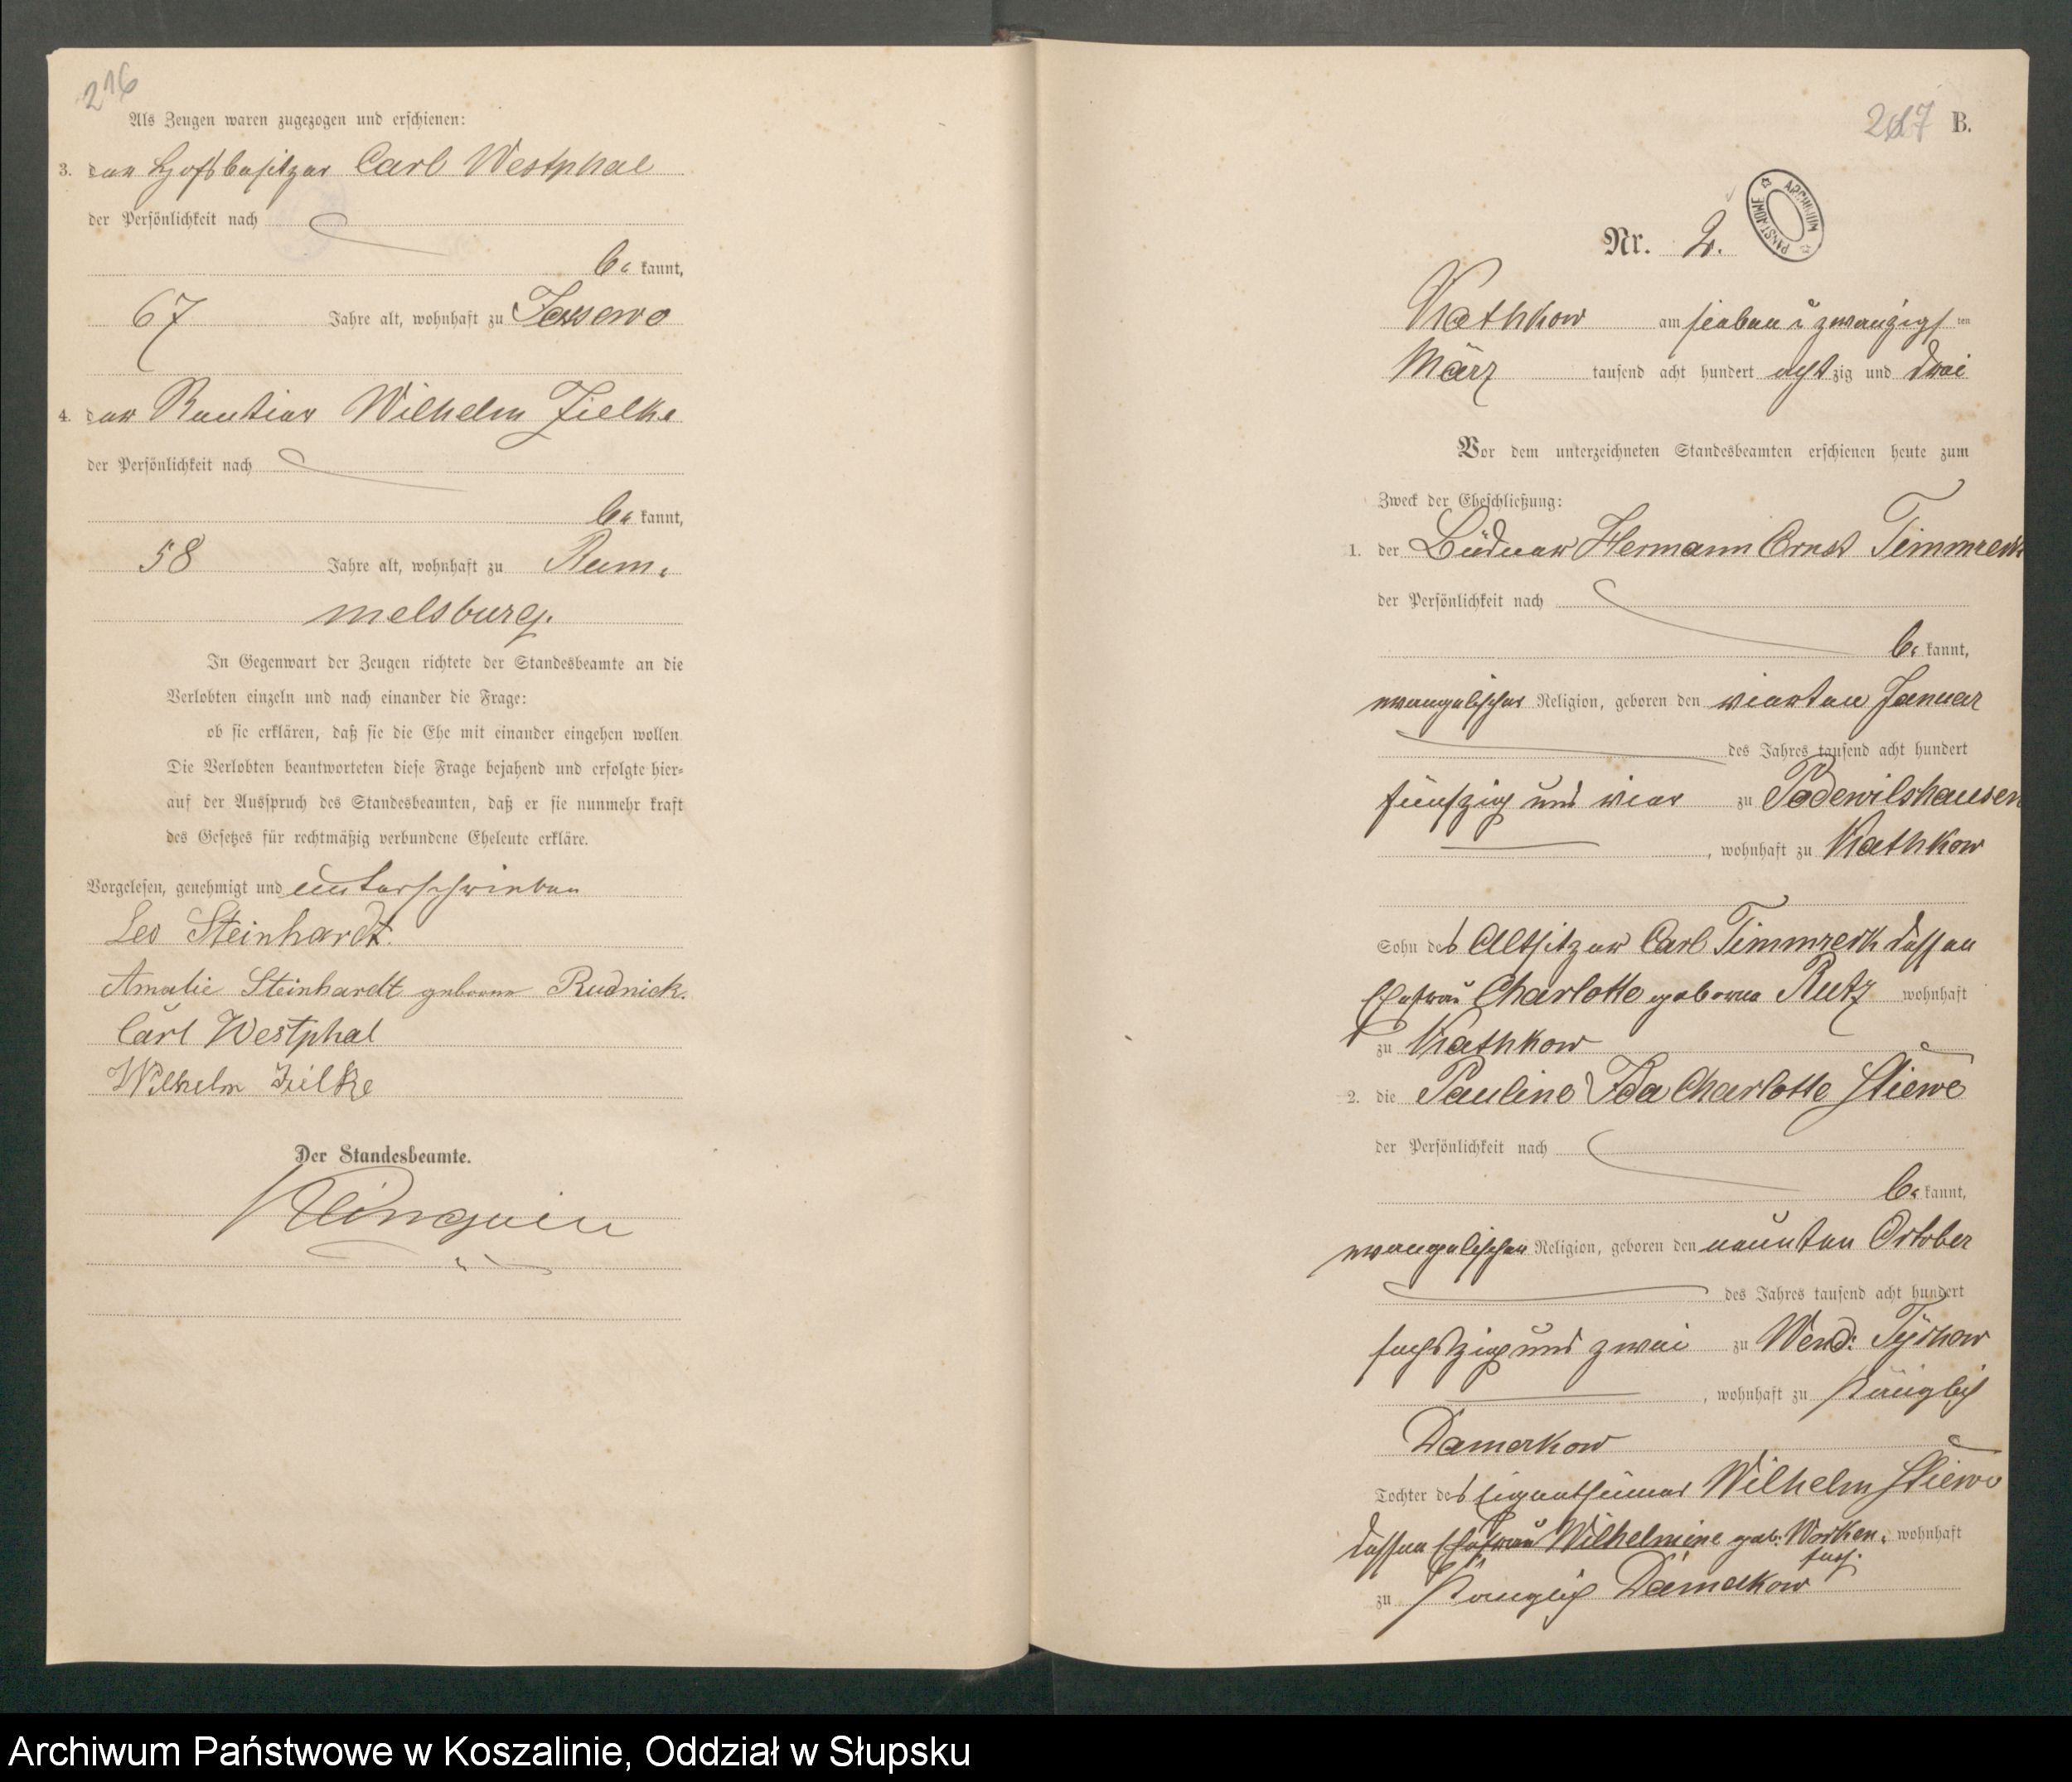 216
Als Zeugen waren zugezogen und erschienen:
3. der Hofsbesitzer Carl Westphal
der Persönlichkeit nach
be kannt,
67 Jahre alt, wohnhaft zu Jassewo
4. der Rentier Wilhelm Zielke
der Persönlichkeit nach
be kannt,
58 Jahre alt, wohnhaft zu Rum-
melsburg.
In Gegenwart der Zeugen richtete der Standesbeamte an die
Verlobten einzeln und nach einander die Frage:
ob sie erklären, daß sie die Ehe mit einander eingehen wollen.
Die Verlobten beantworteten diese Frage bejahend und erfolgte hier-
auf der Ausspruch des Standesbeamten, daß er sie nunmehr kraft
des Gesetzes für rechtmäßig verbundene Eheleute erkläre.
Vorgelesen, genehmigt und unterschrieben
Leo Steinhardt.
Amalie Steinhardt geborne Rudnick.
Carl Westphal
Wilhelm Zielke
Der Standesbeamte.
217 B.
ARCHIWUM PAŃSTWOWE
Nr. 2.
Kathkow am sieben u zwanzigs ten
März tausend acht hundert acht zig und drei
Vor dem unterzeichneten Standesbeamten erschienen heute zum
Zweck der Eheschließung:
1. der Büdner Hermann Ernst Timmreck
der Persönlichkeit nach
be kannt,
evangelischer Religion, geboren den vierten Januar
des Jahres tausend acht hundert
fünfzig und vier zu Podewilshausen
, wohnhaft zu Kathkow
Sohn des Altsitzer Carl Timmreck dessen
Ehefrau Charlotte geborne Rutz wohnhaft
zu Kathkow
2. die Pauline Ida Charlotte Stiewe
der Persönlichkeit nach
be kannt,
evangelischen Religion, geboren den neunten October
des Jahres tausend acht hundert
sechszig und zwei zu Wend: Tychow
, wohnhaft zu Königlich
Damerkow
Tochter des Eigenthümer Wilhelm Stiewe
dessen Ehefrau Wilhelmine geb. wohnhaft
zu Königlich Damerkow
Archiwum Państwowe w Koszalinie, Oddział w Słupsku